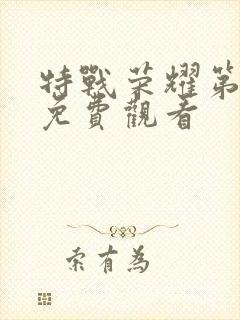 特戰荣耀第
免費觀看
索有為